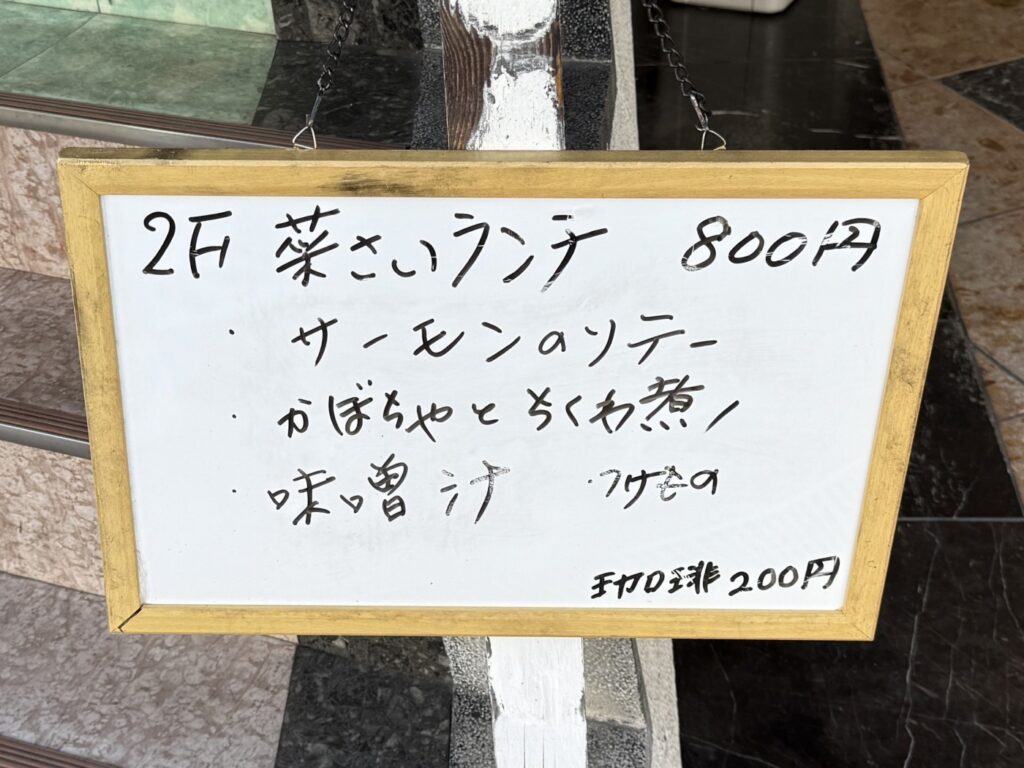 2F 菜さいランチ 800円
・サーモンのソテー
・かぼちゃとちくわ煮ノ
・味噌汁 ・つけもの
珈琲 200円